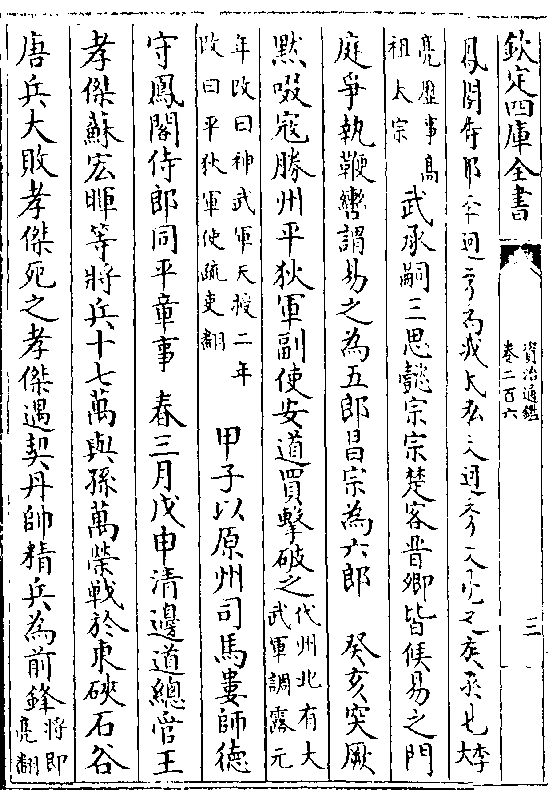 欽定四庫全書
資治通鑑
卷二百六
三
鳳閣侍郎李迥秀為臧氏私夫迥秀
大李
亮歷事高
祖太宗
武承嗣三思懿宗宗楚客晉卿皆候易之門
庭爭執鞭轡謂易之為五郎昌宗為六郎　癸亥突厥
默啜寇勝州平狄軍副使安道買擊破之
代州北有大
武軍調露元
年改曰神武軍天授二年
改曰平狄軍使疏吏翻
甲子以原州司馬婁師德
守鳳閣侍郎同平章事　春三月戊申清邊道總管王
孝傑蘇宏暉等將兵十七萬與孫萬榮戰於東硤石谷
唐兵大敗孝傑死之孝傑遇契丹帥精兵為前鋒
將即
亮翻